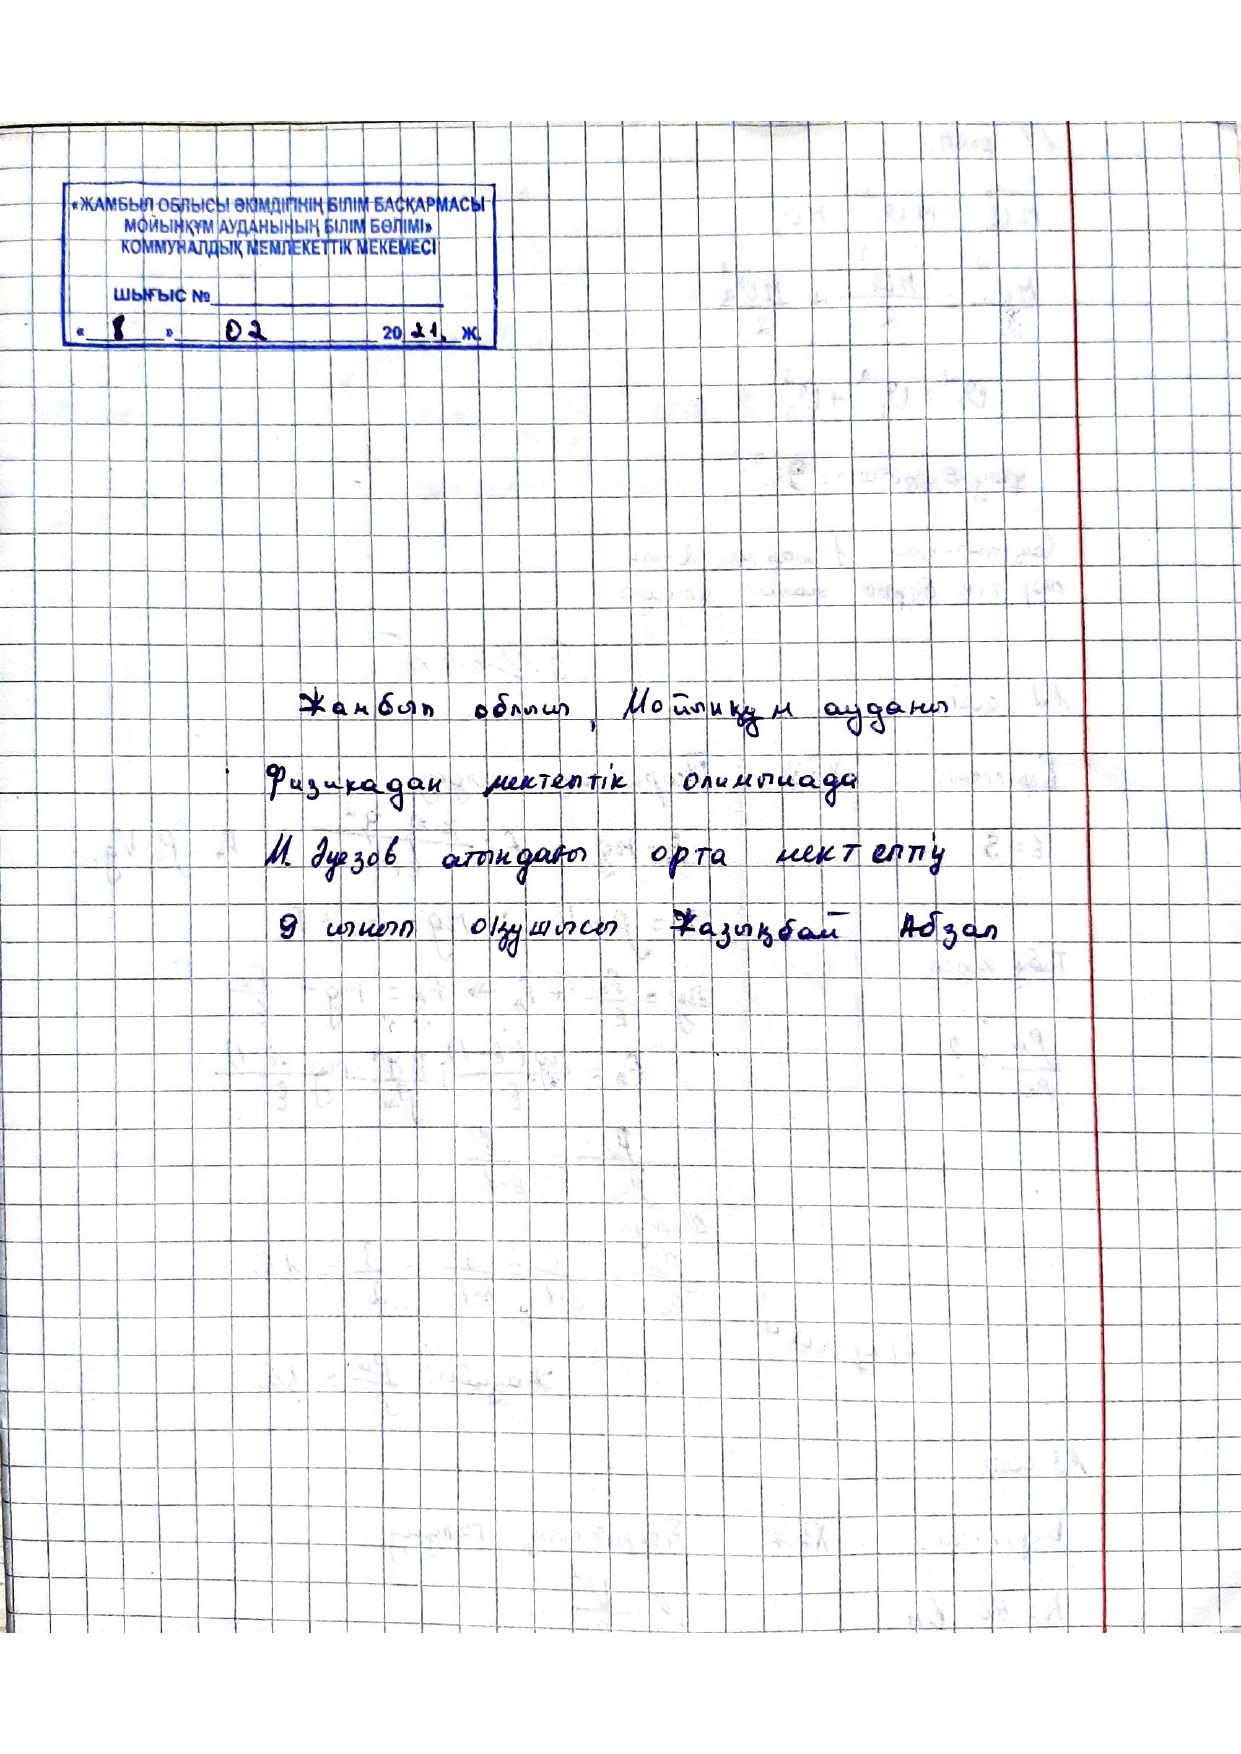 «ЖАМБЫЛ ОБЛЫСЫ ӘКІМДІГІНІҢ БІЛІМ БАСҚАРМАСЫ
МОЙЫНҚҰМ АУДАНЫНЫҢ БІЛІМ БӨЛІМІ»
КОММУНАЛДЫҚ МЕМЛЕКЕТТІК МЕКЕМЕСІ
ШЫҒЫС №
« 8 » 02 2021. Ж.
Жамбыл облысы, Мойынқұм ауданы
Физикадан мектептік олимпиада
М. Әуезов атындағы орта мектептің
9 сынып оқушысы Жазықбай Абзал